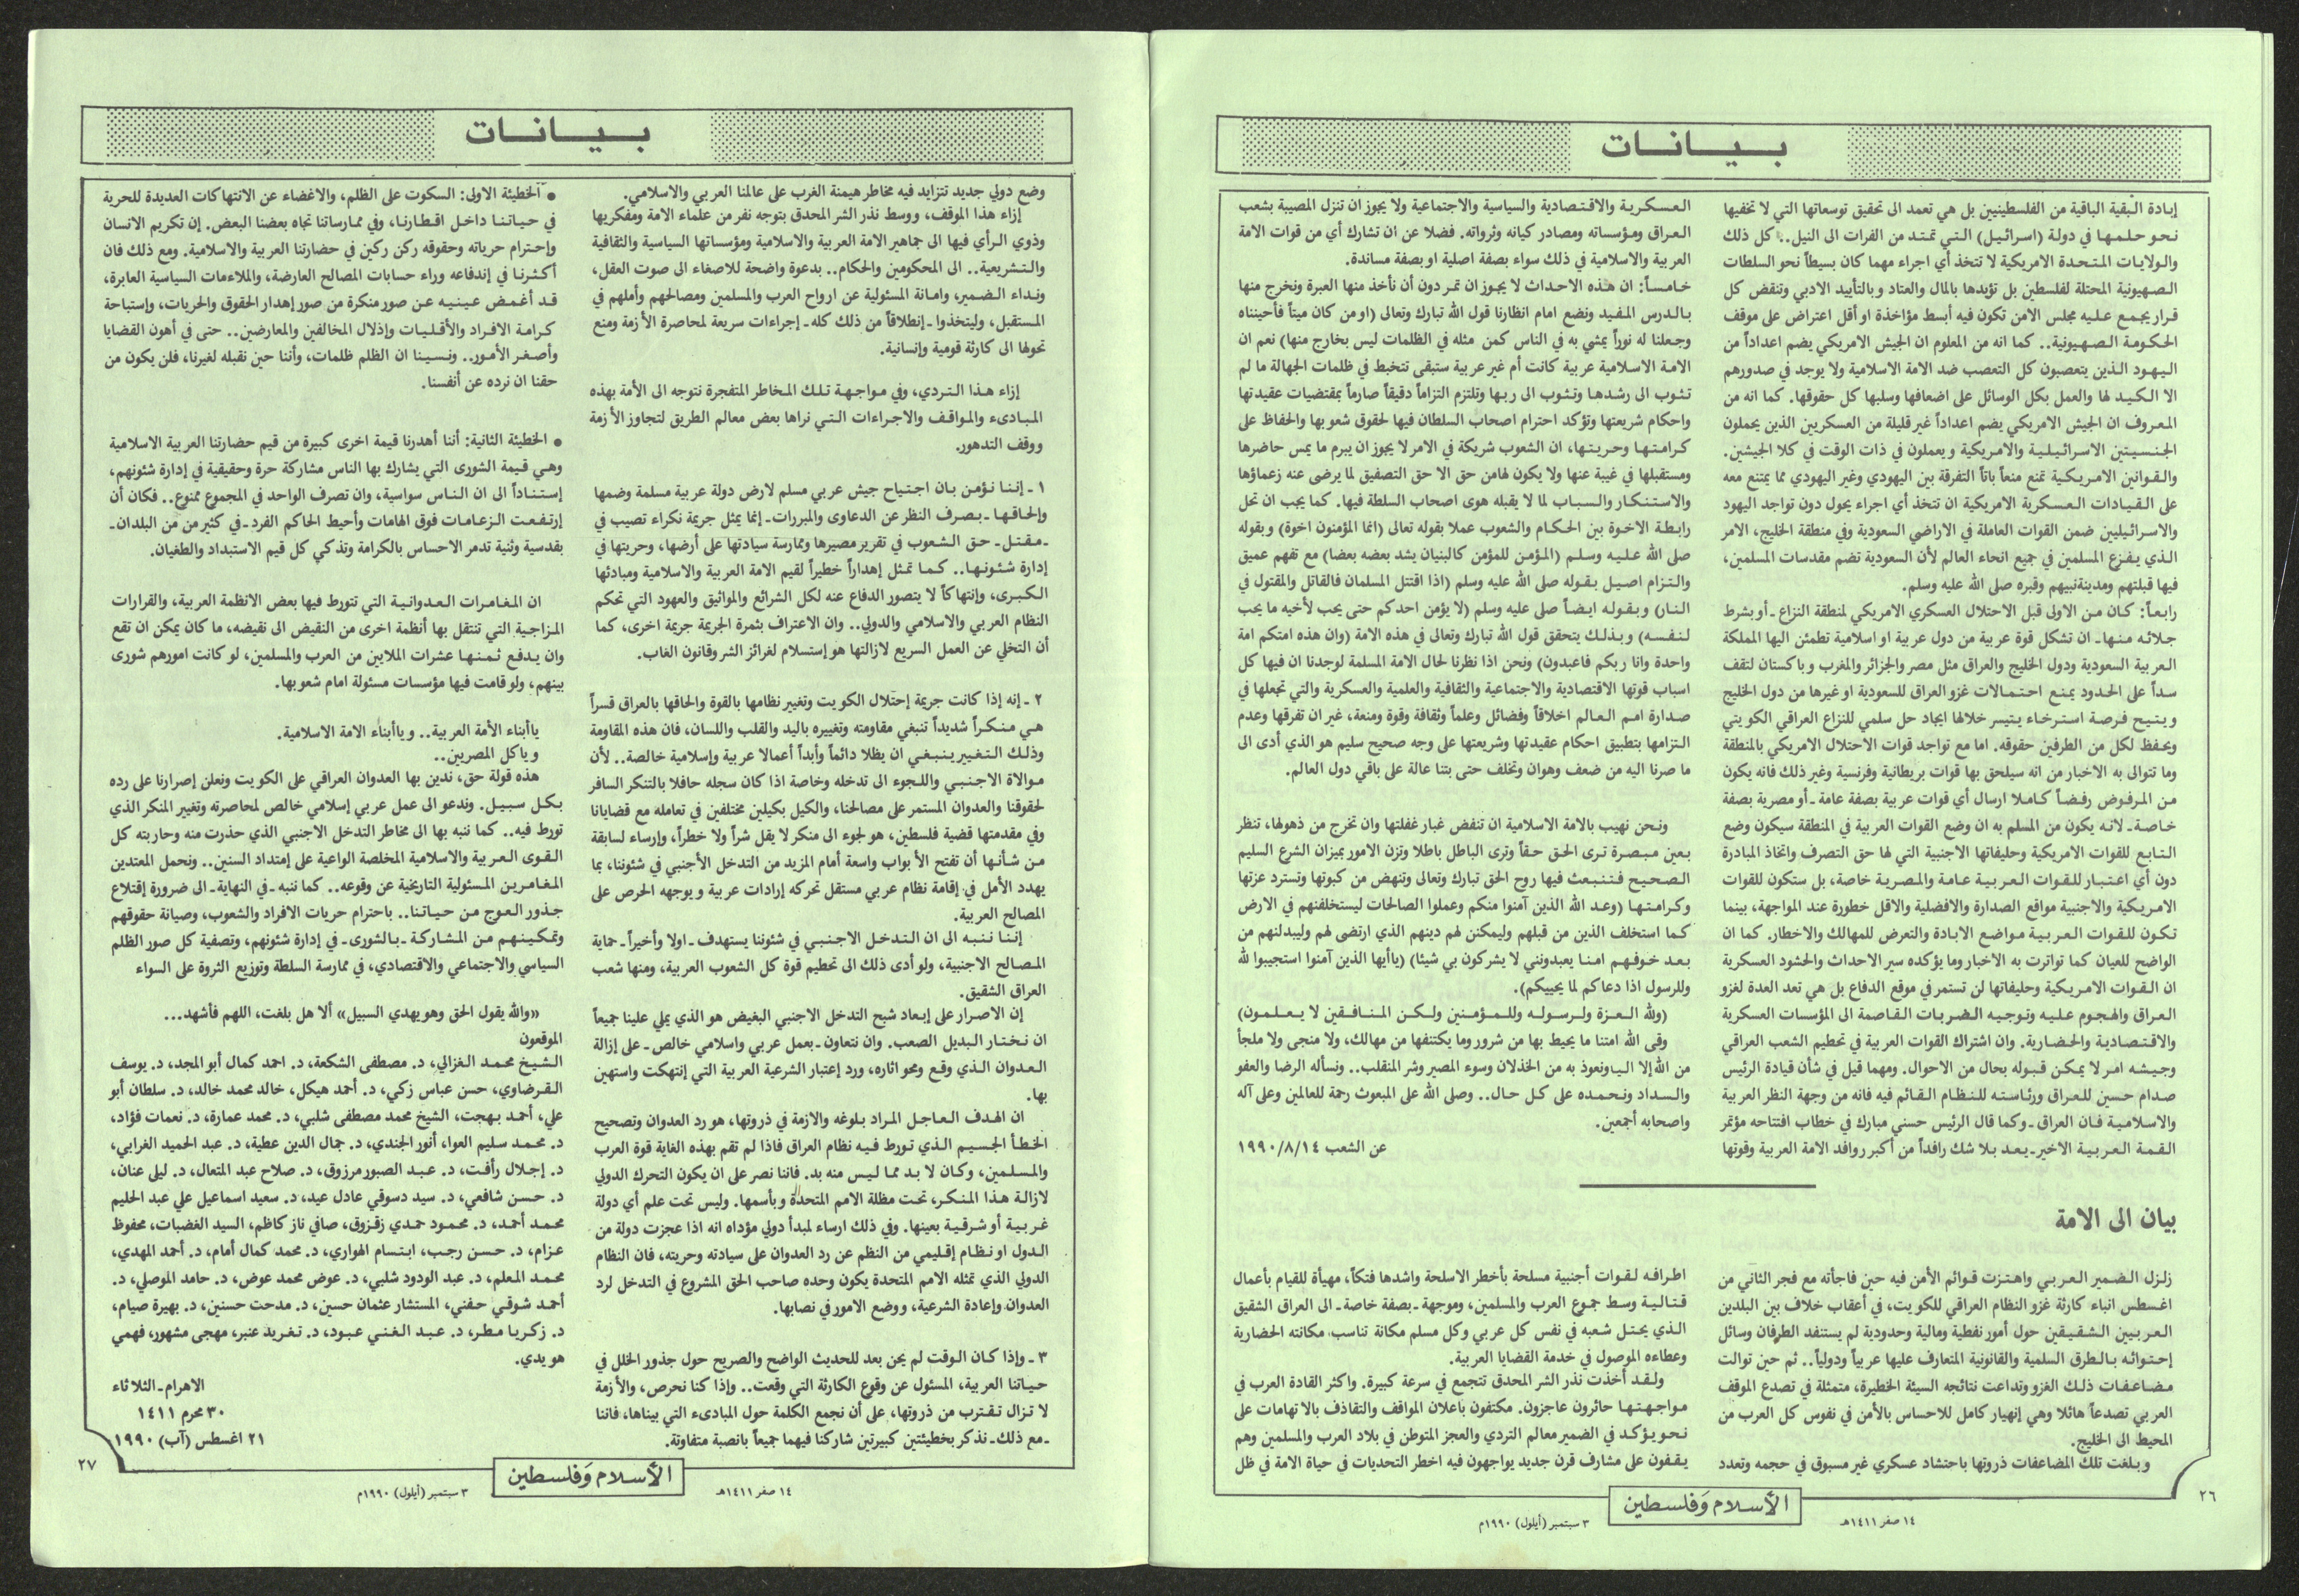 بـيـانـات
إبادة البقية الباقية من الفلسطينيين بل هي تعمد الى تحقيق توسعاتها التي لا تخفيها
نحو حلمها في دولة (اسرائيل) التي تمتد من الفرات الى النيل.. كل ذلك
والولايات المتحدة الامريكية لا تتخذ أي اجراء مهما كان بسيطاً نحو السلطات
الصهيونية المحتلة لفلسطين بل تؤيدها بالمال والعتاد وبالتأييد الادبي وتنقض كل
قرار يجمع عليه مجلس الامن تكون فيه أبسط مؤاخذة او أقل اعتراض على موقف
الحكومة الصهيونية.. كما انه من المعلوم ان الجيش الامريكي يضم اعداداً من
اليهود الذين يتعصبون كل التعصب ضد الامة الاسلامية ولا يوجد في صدورهم
الا الكيد لها والعمل بكل الوسائل على اضعافها وسلبها كل حقوقها. كما انه من
المعروف ان الجيش الامريكي يضم اعداداً غير قليلة من العسكريين الذين يحملون
الجنسيتين الاسرائيلية والامريكية ويعملون في ذات الوقت في كلا الجيشين.
والقوانين الامريكية تمنع منعاً باتاً التفرقة بين اليهودي وغير اليهودي مما يمتنع معه
على القيادات العسكرية الامريكية ان تتخذ أي اجراء يحول دون تواجد اليهود
والاسرائيليين ضمن القوات العاملة في الاراضي السعودية وفي منطقة الخليج، الامر
الذي يفزع المسلمين في جميع انحاء العالم لأن السعودية تضم مقدسات المسلمين،
فيها قبلتهم ومدينةنبيهم وقبره صلى الله عليه وسلم.
رابعاً: كان من الاولى قبل الاحتلال العسكري الامريكي لمنطقة النزاع ـ أو بشرط
جلائه منها ـ ان تشكل قوة عربية من دول عربية او اسلامية تطمئن اليها المملكة
العربية السعودية ودول الخليج والعراق مثل مصر والجزائر والمغرب وباكستان لتقف
سداً على الحدود يمنع احتمالات غزو العراق للسعودية او غيرها من دول الخليج
ويتيح فرصة استرخاء يتيسر خلالها ايجاد حل سلمي للنزاع العراقي الكويتي
ويحفظ لكل من الطرفين حقوقه. اما مع تواجد قوات الاحتلال الامريكي بالمنطقة
وما تتوالى به الاخبار من انه سيلحق بها قوات بريطانية وفرنسية وغير ذلك فانه يكون
من المرفوض رفضاً كاملا ارسال أي قوات عربية بصفة عامة ـ أو مصرية بصفة
خاصة ـ لانه يكون من المسلم به ان وضع القوات العربية في المنطقة سيكون وضع
التابع للقوات الامريكية وحليفاتها الاجنبية التي لها حق التصرف واتخاذ المبادرة
دون أي اعتبار للقوات العربية عامة والمصرية خاصة، بل ستكون للقوات
الامريكية والاجنبية مواقع الصدارة والافضلية والاقل خطورة عند المواجهة، بينما
تكون للقوات العربية مواضع الابادة والتعرض للمهالك والاخطار. كما ان
الواضح للعيان كما تواترت به الاخبار وما يؤكده سير الاحداث والحشود العسكرية
ان القوات الامريكية وحليفاتها لن تستمر في موقع الدفاع بل هي تعد العدة لغزو
العراق والهجوم عليه وتوجيه الضربات القاصمة الى المؤسسات العسكرية
والاقتصادية والحضارية. وان اشتراك القوات العربية في تحطيم الشعب العراقي
وجيشه امر لا يمكن قبوله بحال من الاحوال. ومهما قيل في شأن قيادة الرئيس
صدام حسين للعراق ورئاسته للنظام القائم فيه فانه من وجهة النظر العربية
والاسلامية فان العراق ـ وكما قال الرئيس حسني مبارك في خطاب افتتاحه مؤتمر
القمة العربية الاخير ـ يعد بلا شك رافداً من أكبر روافد الامة العربية وقوتها
العسكرية والاقتصادية والسياسية والاجتماعية ولا يجوز ان تنزل المصيبة بشعب
العراق ومؤسساته ومصادر كيانه وثرواته. فضلا عن ان تشارك أي من قوات الامة
العربية والاسلامية في ذلك سواء بصفة اصلية او بصفة مساندة.
خامساً: ان هذه الاحداث لا يجوز ان تمر دون أن نأخذ منها العبرة ونخرج منها
بالدرس المفيد ونضع امام انظارنا قول الله تبارك وتعالى (او من كان ميتاً فأحييناه
وجعلنا له نوراً يمشي به في الناس كمن مثله في الظلمات ليس بخارج منها) نعم ان
الامة الاسلامية عربية كانت أم غير عربية ستبقى تتخبط في ظلمات الجهالة ما لم
تثوب الى رشدها وتثوب الى ربها وتلتزم التزاماً دقيقاً صارماً بمقتضيات عقيدتها
واحكام شريعتها وتؤكد احترام اصحاب السلطان فيها لحقوق شعوبها والحفاظ على
كرامتها وحريتها، ان الشعوب شريكة في الامر لا يجوز ان يبرم ما يمس حاضرها
ومستقبلها في غيبة عنها ولا يكون لهامن حق الا حق التصفيق لما يرضى عنه زعماؤها
والاستنكار والسباب لما لا يقبله هوى اصحاب السلطة فيها. كما يجب ان تحل
رابطة الاخوة بين الحكام والشعوب عملا بقوله تعالى (انما المؤمنون اخوة) وبقوله
صلى الله عليه وسلم (المؤمن للمؤمن كالبنيان يشد بعضه بعضا) مع تفهم عميق
والتزام اصيل بقوله صلى الله عليه وسلم (اذا اقتتل المسلمان فالقاتل والمقتول في
النار) وبقوله ايضاً صلى عليه وسلم (لا يؤمن احدكم حتى يحب لأخيه ما يحب
لنفسه) وبذلك يتحقق قول الله تبارك وتعالى في هذه الامة (وان هذه امتكم امة
واحدة وانا ربكم فاعبدون) ونحن اذا نظرنا لحال الامة المسلمة لوجدنا ان فيها كل
اسباب قوتها الاقتصادية والاجتماعية والثقافية والعلمية والعسكرية والتي تجعلها في
صدارة امم العالم اخلاقاً وفضائل وعلماً وثقافة وقوة ومنعة، غير ان تفرقها وعدم
التزامها بتطبيق احكام عقيدتها وشريعتها على وجه صحيح سليم هو الذي أدى الى
ما صرنا اليه من ضعف وهوان وتخلف حتى بتنا عالة على باقي دول العالم.
ونحن نهيب بالامة الاسلامية ان تنفض غبار غفلتها وان تخرج من ذهولها، تنظر
بعين مبصرة ترى الحق حقاً وترى الباطل باطلا وتزن الامور بميزان الشرع السليم
الصحيح فتنبعث فيها روح الحق تبارك وتعالى وتنهض من كبوتها وتسترد عزتها
وكرامتها (وعد الله الذين آمنوا منكم وعملوا الصالحات ليستخلفنهم في الارض
كما استخلف الذين من قبلهم وليمكنن لهم دينهم الذي ارتضى لهم وليبدلنهم من
بعد خوفهم امنا يعبدونني لا يشركون بي شيئا) (ياأيها الذين آمنوا استجيبوا لله
وللرسول اذا دعاكم لما يحييكم).
(ولله العزة ولرسوله وللمؤمنين ولكن المنافقين لا يعلمون)
وقى الله امتنا ما يحيط بها من شرور وما يكتنفها من مهالك، ولا منجى ولا ملجأ
من الله إلا الياونعوذ به من الخذلان وسوء المصير وشر المنقلب.. ونسأله الرضا والعفو
والسداد ونحمده على كل حال.. وصلى الله على المبعوث رحمة للعالمين وعلى آله
واصحابه أجمعين.
عن الشعب ١٩٩٠/٨/١٤
بيان الى الامة
زلزل الضمير العربي واهتزت قوائم الأمن فيه حين فاجأته مع فجر الثاني من
اغسطس انباء كارثة غزو النظام العراقي للكويت، في أعقاب خلاف بين البلدين
العربيين الشقيقين حول أمور نفطية ومالية وحدودية لم يستنفد الطرفان وسائل
إحتوائه بالطرق السلمية والقانونية المتعارف عليها عربياً ودولياً.. ثم حين توالت
مضاعفات ذلك الغزو وتداعت نتائجه السيئة الخطيرة، متمثلة في تصدع الموقف
العربي تصدعاً هائلا وهي إنهيار كامل للاحساس بالأمن في نفوس كل العرب من
المحيط الى الخليج.
وبلغت تلك المضاعفات ذروتها باحتشاد عسكري غير مسبوق في حجمه وتعدد
اطرافه لقوات أجنبية مسلحة بأخطر الاسلحة واشدها فتكاً، مهيأة للقيام بأعمال
قتالية وسط جموع العرب والمسلمين، وموجهة ـ بصفة خاصة ـ الى العراق الشقيق
الذي يحتل شعبه في نفس كل عربي وكل مسلم مكانة تناسب مكانته الحضارية
وعطاءه الموصول في خدمة القضايا العربية.
ولقد أخذت نذر الشر المحدق تتجمع في سرعة كبيرة. واكثر القادة العرب في
مواجهتها حائرون عاجزون. مكتفون باعلان المواقف والتقاذف بالاتهامات على
نحو يؤكد في الضمير معالم التردي والعجز المتوطن في بلاد العرب والمسلمين وهم
يقفون على مشارف قرن جديد يواجهون فيه اخطر التحديات في حياة الامة في ظل
٢٦
الأسلام وَفلسطين
١٤ صفر ١٤١١هـ
٣ سبتمبر (أيلول) ١٩٩٠م
بـيـانـات
وضع دولي جديد تتزايد فيه مخاطر هيمنة الغرب على عالمنا العربي والاسلامي.
إزاء هذا الموقف، ووسط نذر الشر المحدق بتوجه نفر من علماء الامة ومفكريها
وذوي الرأي فيها الى جماهير الامة العربية والاسلامية ومؤسساتها السياسية والثقافية
والتشريعية.. الى المحكومين والحكام.. بدعوة واضحة للاصغاء الى صوت العقل،
ونداء الضمير، وامانة المسئولية عن ارواح العرب والمسلمين ومصالحهم وأملهم في
المستقبل، وليتخذوا ـ إنطلاقاً من ذلك كله ـ إجراءات سريعة لمحاصرة الأزمة ومنع
تحولها الى كارثة قومية وإنسانية.
إزاء هذا التردي، وفي مواجهة تلك المخاطر المتفجرة نتوجه الى الأمة بهذه
المبادىء والمواقف والاجراءات التي نراها بعض معالم الطريق لتجاوز الأزمة
ووقف التدهور.
١ ـ إننا نؤمن بان اجتياح جيش عربي مسلم لارض دولة عربية مسلمة وضمها
وإلحاقها ـ بصرف النظر عن الدعاوى والمبررات ـ إنما يمثل جريمة نكراء تصيب في
ـ مقتل ـ حق الشعوب في تقرير مصيرها وممارسة سيادتها على أرضها، وحريتها في
إدارة شئونها.. كما تمثل إهداراً خطيراً لقيم الامة العربية والاسلامية ومبادئها
الكبرى، وإنتهاكاً لا يتصور الدفاع عنه لكل الشرائع والمواثيق والعهود التي تحكم
النظام العربي والاسلامي والدولي.. وان الاعتراف بثمرة الجريمة جريمة اخرى، كما
أن التخلي عن العمل السريع لازالتها هو إستسلام لغرائز الشر وقانون الغاب.
٢ ـ إنه إذا كانت جريمة إحتلال الكويت وتغيير نظامها بالقوة والحاقها بالعراق قسراً
هي منكراً شديداً تنبغي مقاومته وتغييره باليد والقلب واللسان، فان هذه المقاومة
وذلك التغيير ينبغي ان يظلا دائماً وأبداً أعمالا عربية وإسلامية خالصة.. لأن
موالاة الاجنبي واللجوء الى تدخله وخاصة اذا كان سجله حافلا بالتنكر السافر
لحقوقنا والعدوان المستمر على مصالحنا، والكيل بكيلين مختلفين في تعامله مع قضايانا
وفي مقدمتها قضية فلسطين، هو لجوء الى منكر لا يقل شراً ولا خطراً، وإرساء لسابقة
من شأنها أن تفتح الأبواب واسعة أمام المزيد من التدخل الأجنبي في شئوننا، بما
يهدد الأمل في إقامة نظام عربي مستقل تحركه إرادات عربية ويوجهه الحرص على
المصالح العربية.
إننا ننبه الى ان التدخل الاجنبي في شئوننا يستهدف ـ اولا وأخيراً ـ حماية
المصالح الاجنبية، ولو أدى ذلك الى تحطيم قوة كل الشعوب العربية، ومنها شعب
العراق الشقيق.
إن الاصرار على إبعاد شبح التدخل الاجنبي البغيض هو الذي يملي علينا جميعاً
ان نختار البديل الصعب. وان نتعاون ـ بعمل عربي واسلامي خالص ـ على إزالة
العدوان الذي وقع ومحو اثاره، ورد إعتبار الشرعية العربية التي إنتهكت واستهين
بها.
ان الهدف العاجل المراد بلوغه والازمة في ذروتها، هو رد العدوان وتصحيح
الخطأ الجسيم الذي تورط فيه نظام العراق فاذا لم تقم بهذه الغاية قوة العرب
والمسلمين، وكان لا بد مما ليس منه بد. فاننا نصر على ان يكون التحرك الدولي
لازالة هذا المنكر، تحت مظلة الامم المتحدة وبأسمها. وليس تحت علم أي دولة
غربية أو شرقية بعينها. وفي ذلك ارساء لمبدأ دولي مؤداه انه اذا عجزت دولة من
الدول او نظام إقليمي من النظم عن رد العدوان على سيادته وحريته، فان النظام
الدولي الذي تمثله الامم المتحدة يكون وحده صاحب الحق المشروع في التدخل لرد
العدوان وإعادة الشرعية، ووضع الامور في نصابها.
٣ ـ وإذا كان الوقت لم يحن بعد للحديث الواضح والصريح حول جذور الخلل في
حياتنا العربية، المسئول عن وقوع الكارثة التي وقعت.. وإذا كنا نحرص، والأزمة
لا تزال تقترب من ذروتها، على أن نجمع الكلمة حول المبادىء التي بيناها، فاننا
ـ مع ذلك ـ نذكر بخطيئتين كبيرتين شاركنا فيهما جميعاً بانصبة متفاوتة.
● الخطيئة الاولى: السكوت على الظلم، والاغضاء عن الانتهاكات العديدة للحرية
في حياتنا داخل اقطارنا، وفي ممارساتنا تجاه بعضنا البعض. إن تكريم الانسان
وإحترام حرياته وحقوقه ركن ركين في حضارتنا العربية والاسلامية. ومع ذلك فان
أكثرنا في إندفاعه وراء حسابات المصالح العارضة، والملاءمات السياسية العابرة،
قد أغمض عينيه عن صور منكرة من صور إهدار الحقوق والحريات، وإستباحة
كرامة الافراد والأقليات وإذلال المخالفين والمعارضين.. حتى في أهون القضايا
وأصغر الأمور.. ونسينا ان الظلم ظلمات، وأننا حين نقبله لغيرنا، فلن يكون من
حقنا ان نرده عن أنفسنا.
● الخطيئة الثانية: أننا أهدرنا قيمة اخرى كبيرة من قيم حضارتنا العربية الاسلامية
وهي قيمة الشورى التي يشارك بها الناس مشاركة حرة وحقيقية في إدارة شئونهم،
إستناداً الى ان الناس سواسية، وان تصرف الواحد في المجموع ممنوع.. فكان أن
إرتفعت الزعامات فوق الهامات وأحيط الحاكم الفرد ـ في كثير من من البلدان ـ
بقدسية وثنية تدمر الاحساس بالكرامة وتذكي كل قيم الاستبداد والطغيان.
ان المغامرات العدوانية التي تتورط فيها بعض الانظمة العربية، والقرارات
المزاجية التي تنتقل بها أنظمة اخرى من النقيض الى نقيضه، ما كان يمكن ان تقع
وان يدفع ثمنها عشرات الملايين من العرب والمسلمين، لو كانت امورهم شورى
بينهم، ولو قامت فيها مؤسسات مسئولة امام شعوبها.
ياأبناء الأمة العربية.. وياأبناء الامة الاسلامية.
وياكل المصريين..
هذه قولة حق، ندين بها العدوان العراقي على الكويت ونعلن إصرارنا على رده
بكل سبيل. وندعو الى عمل عربي إسلامي خالص لمحاصرته وتغيير المنكر الذي
تورط فيه.. كما ننبه بها الى مخاطر التدخل الاجنبي الذي حذرت منه وحاربته كل
القوى العربية والاسلامية المخلصة الواعية على إمتداد السنين.. ونحمل المعتدين
المغامرين المسئولية التاريخية عن وقوعه.. كما ننبه ـ في النهاية ـ الى ضرورة إقتلاع
جذور العوج من حياتنا.. باحترام حريات الافراد والشعوب، وصيانة حقوقهم
وتمكينهم من المشاركة ـ بالشورى ـ في إدارة شئونهم، وتصفية كل صور الظلم
السياسي والاجتماعي والاقتصادي، في ممارسة السلطة وتوزيع الثروة على السواء
«والله يقول الحق وهو يهدي السبيل» ألا هل بلغت، اللهم فأشهد...
الموقعون
الشيخ محمد الغزالي، د. مصطفى الشكعة، د. احمد كمال أبو المجد، د. يوسف
القرضاوي، حسن عباس زكي، د. أحمد هيكل، خالد محمد خالد، د. سلطان أبو
علي، أحمد بهجت، الشيخ محمد مصطفى شلبي، د. محمد عمارة، د. نعمات فؤاد،
د. محمد سليم العوا، أنور الجندي، د. جمال الدين عطية، د. عبد الحميد الغرابي،
د. إجلال رأفت، د. عبد الصبور مرزوق، د. صلاح عبد المتعال، د. ليلى عنان،
د. حسن شافعي، د. سيد دسوقي عادل عيد، د. سعيد اسماعيل علي عبد الحليم
محمد أحمد، د. محمود حمدي زقزوق، صافي ناز كاظم، السيد الغضبات، محفوظ
عزام، د. حسن رجب، ابتسام الهواري، د. محمد كمال أمام، د. أحمد المهدي،
محمد المعلم، د. عبد الودود شلبي، د. عوض محمد عوض، د. حامد الموصلي، د.
أحمد شوقي حفني، المستشار عثمان حسين، د. مدحت حسنين، د. بهيرة صيام،
د. زكريا مطر، د. عبد الغني عبود، د. تغريد عنبر، مهجى مشهور، فهمي
هويدي.
الاهرام ـ الثلاثاء
٣٠ محرم ١٤١١
٢١ اغسطس (آب) ١٩٩٠
٢٧
الأسلام وَفلسطين
١٤ صفر ١٤١١هـ
٣ سبتمبر (أيلول) ١٩٩٠م